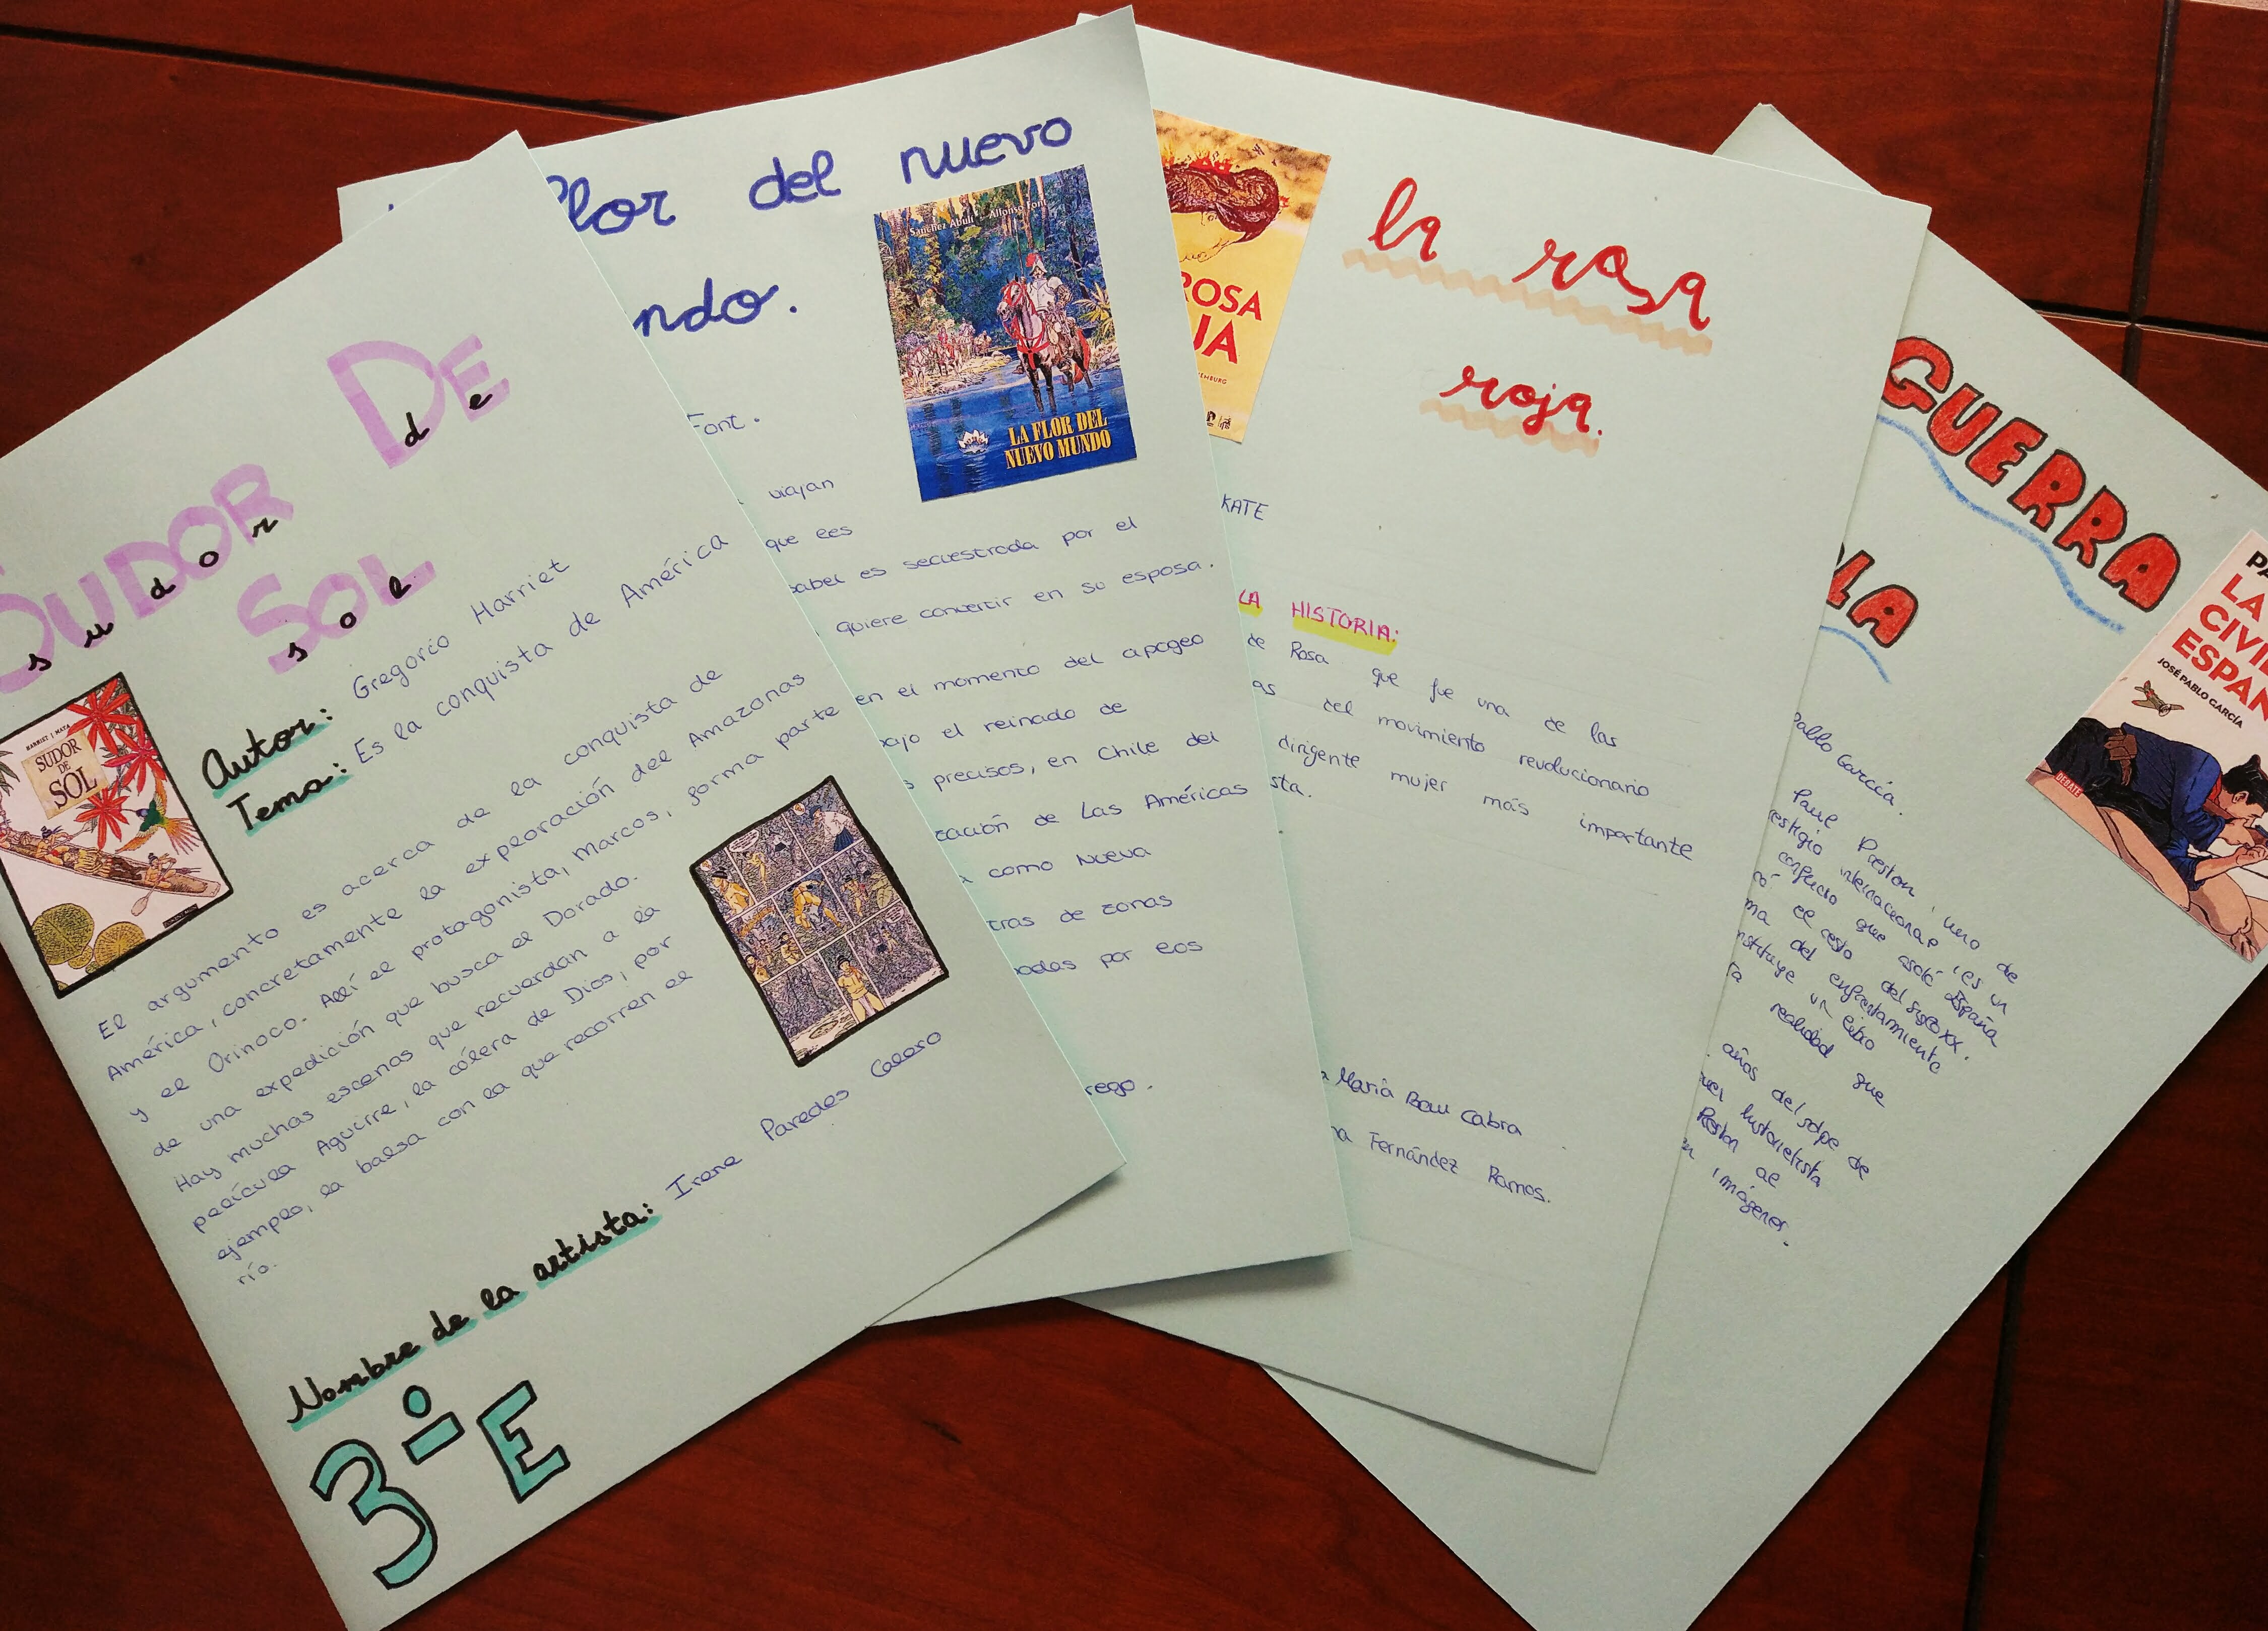 SUDOR DE
sudor de
SOL
sol
HARRIET | MATA
SUDOR
DE
SOL
Autor: Gregorio Harriet
Tema: Es la conquista de América
El argumento es acerca de la conquista de
América, concretamente la exploración del Amazonas
y el Orinoco. Allí el protagonista, Marcos, forma parte
de una expedición que busca el Dorado.
Hay muchas escenas que recuerdan a la
película Aguirre, la cólera de Dios, por
ejemplo, la balsa con la que recorren el
río.
Nombre de la artista: Irene Paredes Calero
3º E
flor del nuevo
ndo.
Sánchez Abulí Alfonso Font
LA FLOR DEL
NUEVO MUNDO
Font.
viajan
que les
sabel es secuestrada por el
quiere convertir en su esposa.
en el momento del apogeo
bajo el reinado de
s precisos, en Chile del
zación de Las Américas
a como Nueva
tras de zonas
badas por los
rego.
la rosa
roja.
ROSA
JA
KATE
LA HISTORIA:
de Rosa que fue una de las
as del movimiento revolucionario
dirigente mujer más importante
sta.
a María Bau Cabra
na Fernández Ramos.
GUERRA
OLA
PA
LA
CIVI
ESPAÑ
JOSÉ PABLO GARCÍA
DEBATE
Pablo García.
Paul Preston, uno de
restigio internacional, es un
conflicto que asoló España
el resto del siglo XX.
ma del enfrentamiento
nstituye un libro
ta realidad que
años del golpe de
historietista
Preston al
en imágenes.